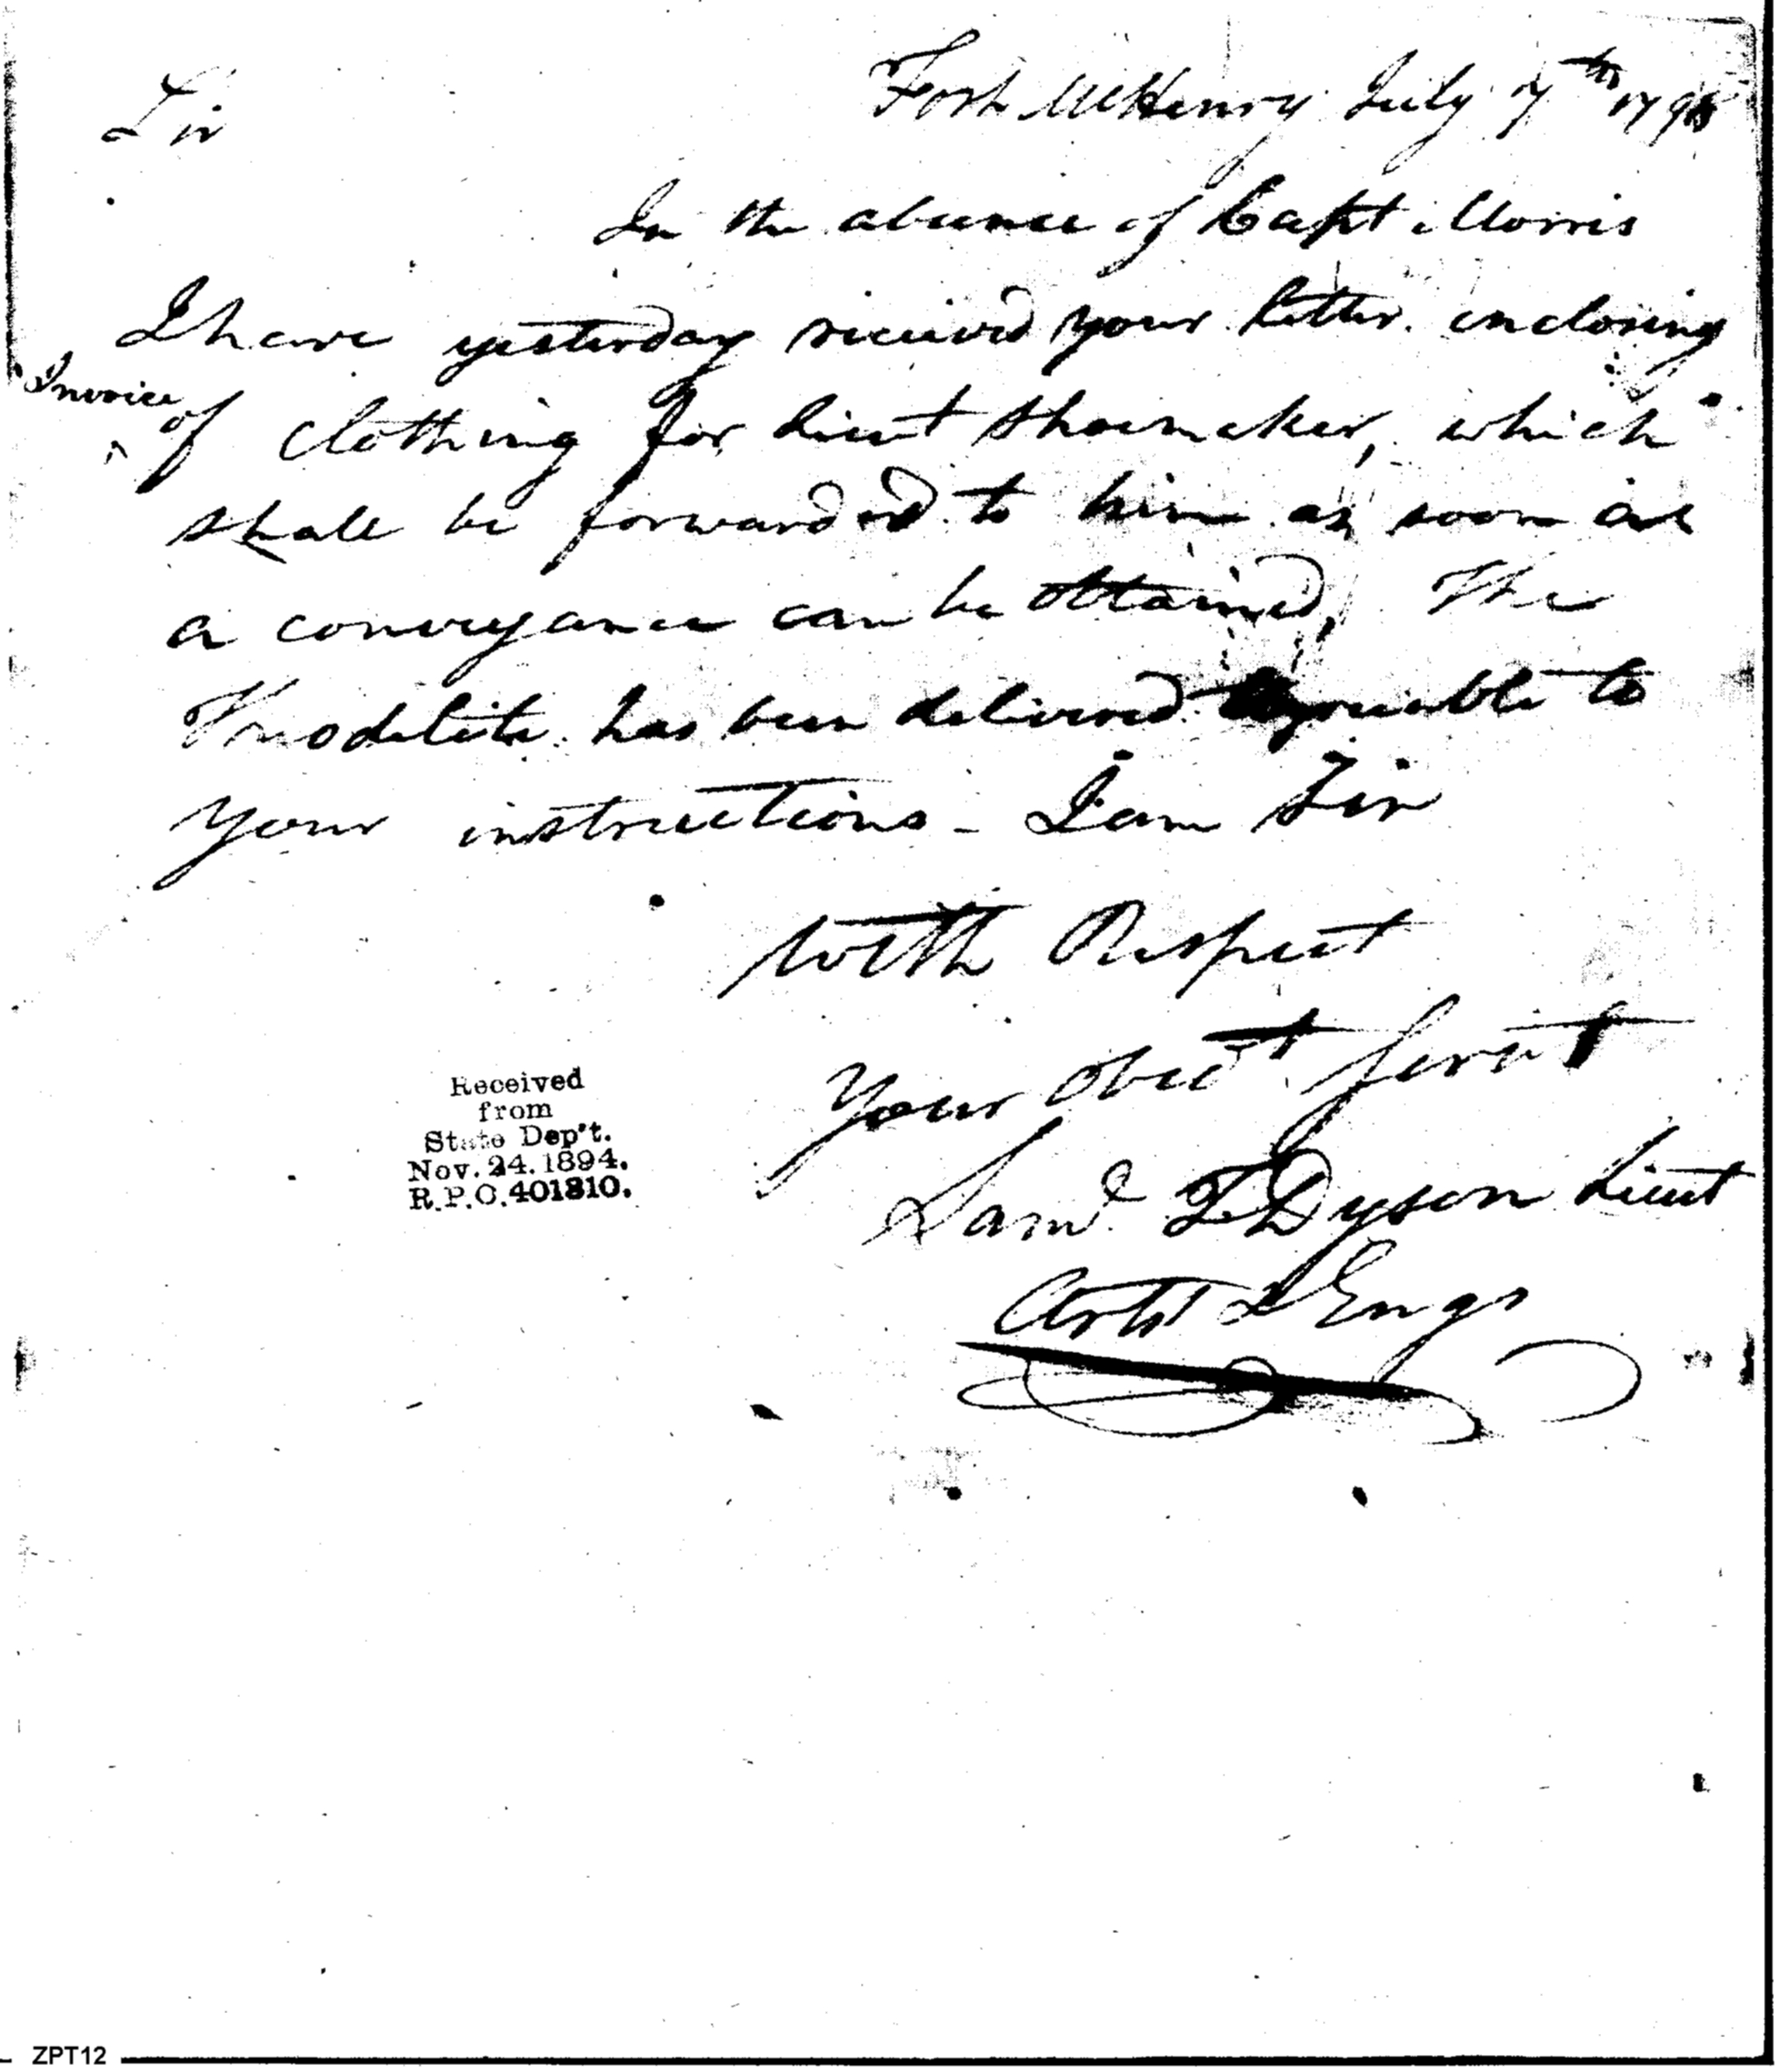 Fort McHenry July 7th 1798
Sir
In the absence of Capt Morris
I have yesterday received your letter enclosing
Invoice of Clothing for Lieut Shoemaker, which
shall be forwarded to him as soon as
a conveyance can be obtained, The
Theodelite has been delivered agreeable to
your instructions - I am Sir
With Respect
Your Obedt Servt
Saml T Dyson Lieut
Artst & Engs
Received
from
State Dep't.
Nov. 24. 1894.
R.P.O. 401810.
ZPT12